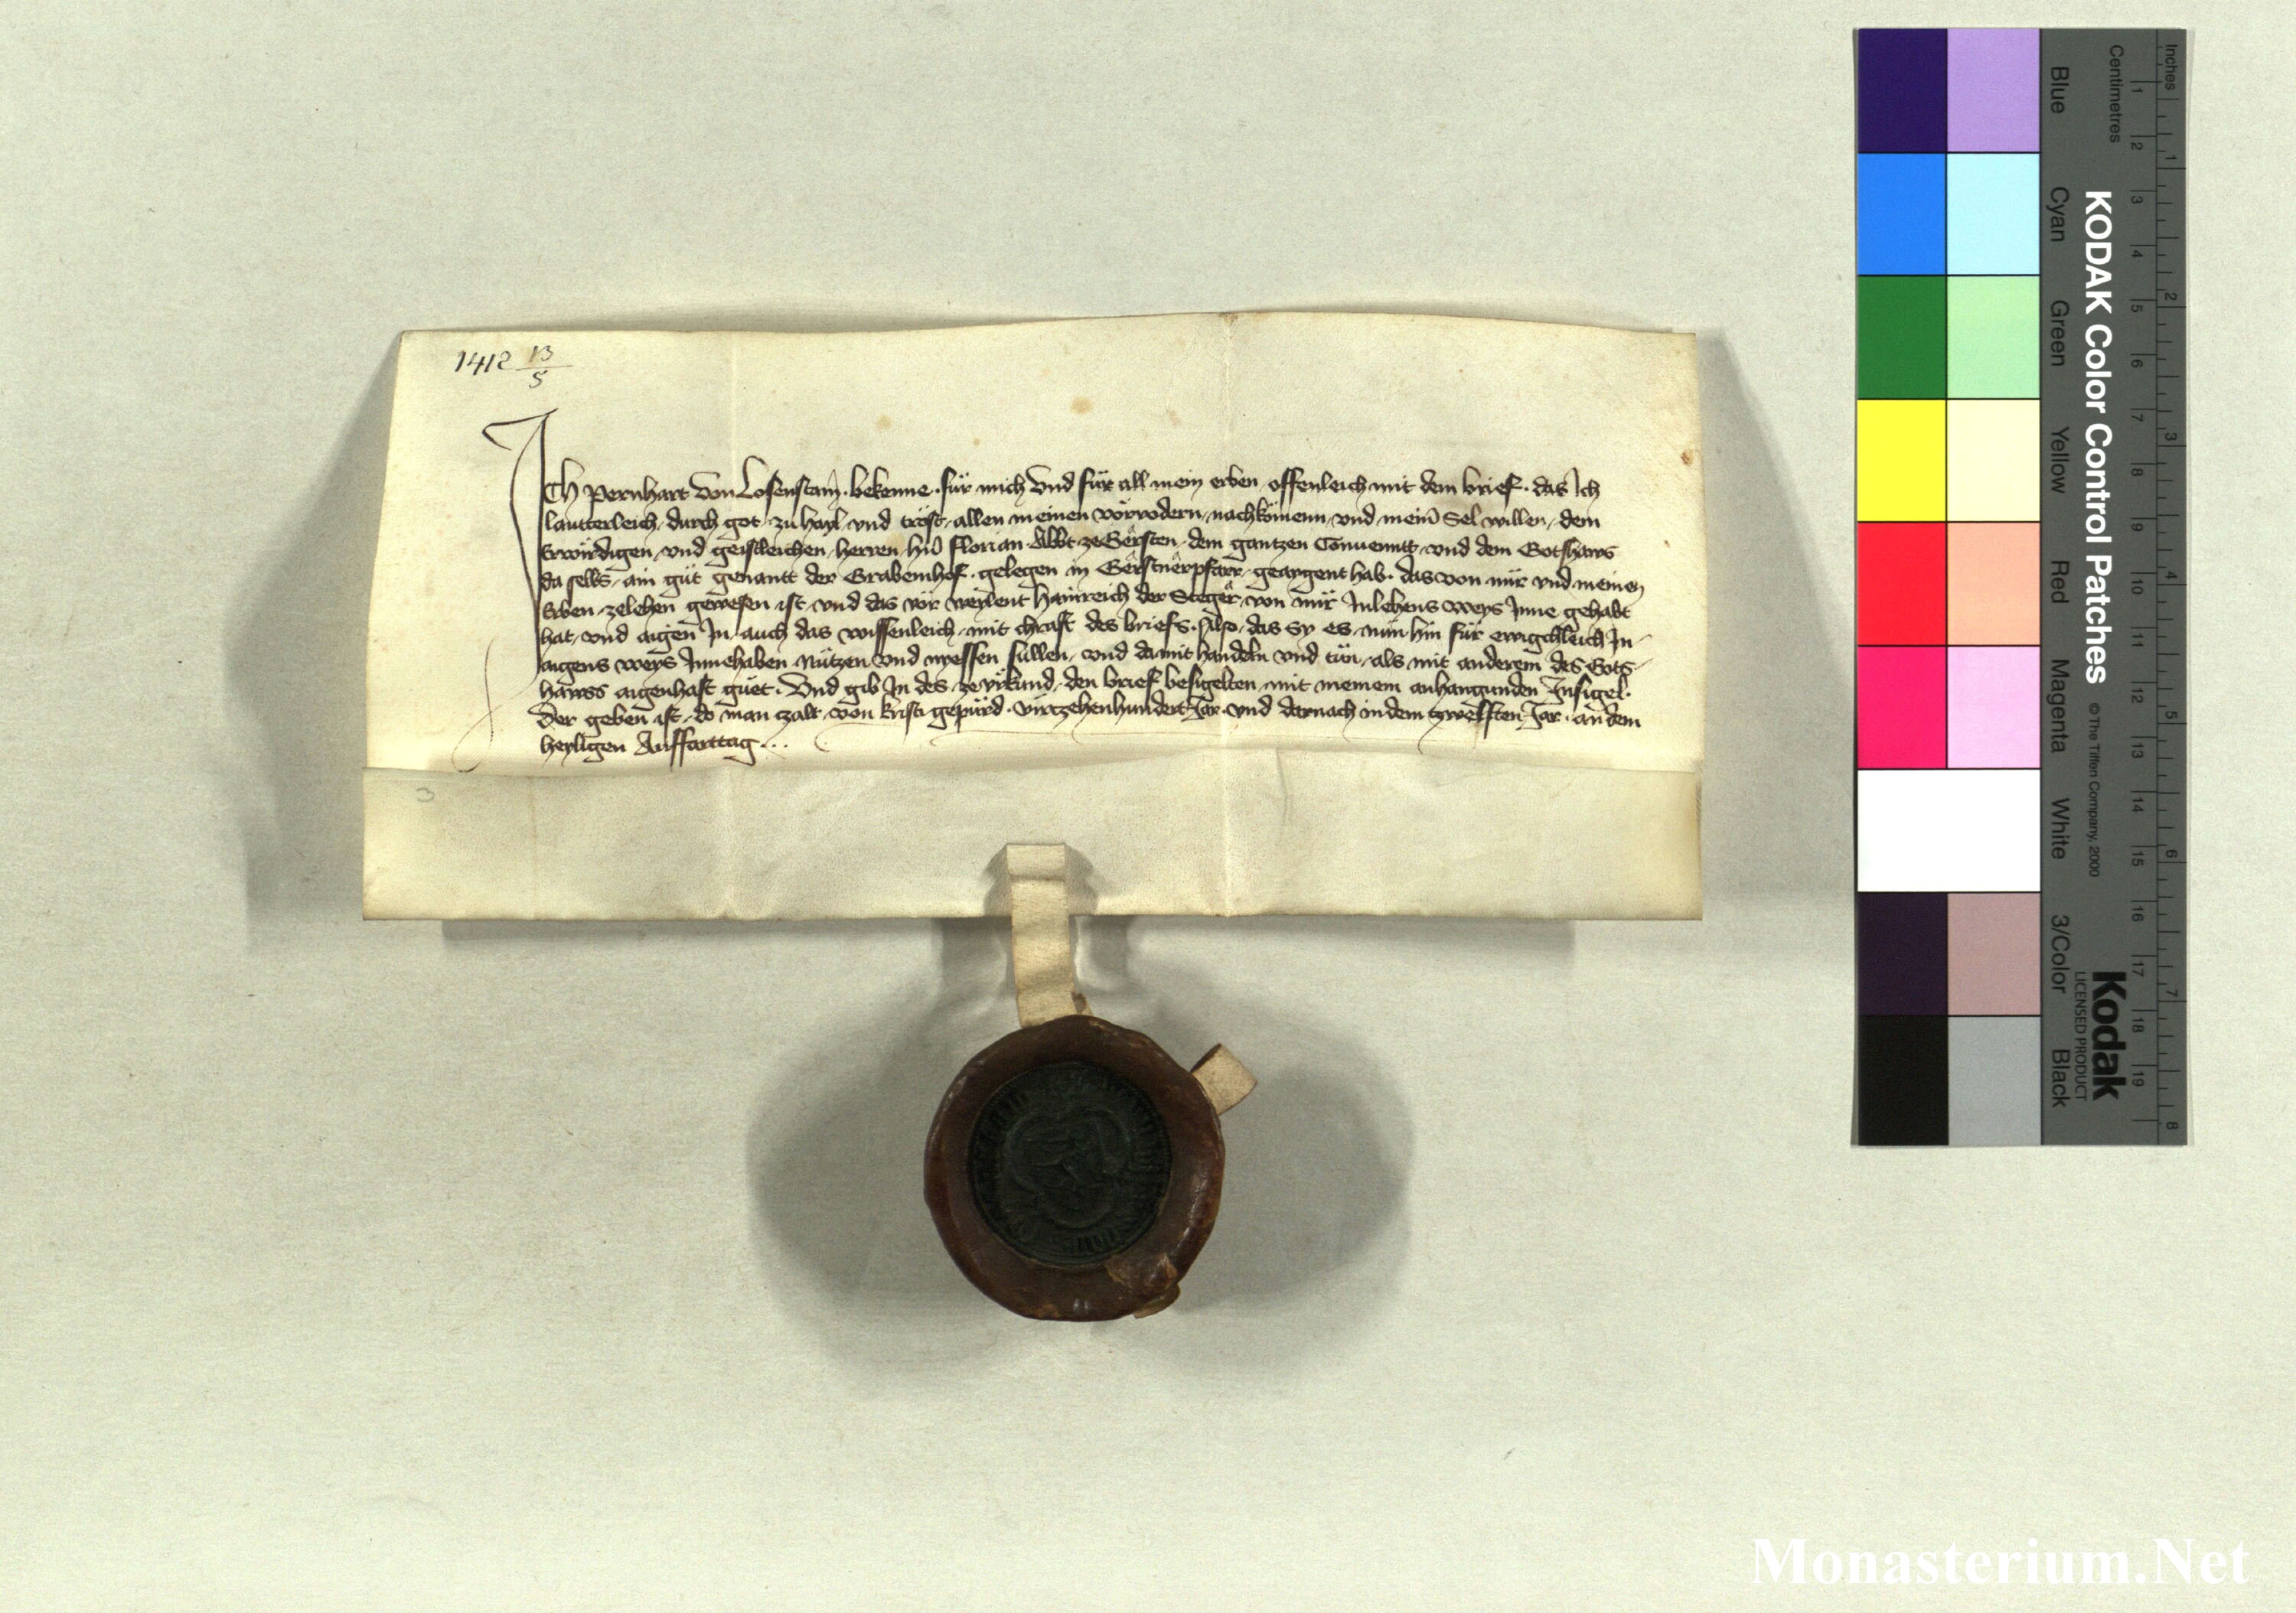 1412 13/5
ICh Pernhart von Losenstain. bekenne. für mich und für all mein erben offenleich mit dem brief. das Ich
lautterleich, durch got, zu hayl und tröst, allen meinen vorvodern, nachkömenn, und mein Sel willen, dem
Erwirdigen, und geistleichen, herren, hern Florian Abbt ze Gersten, dem gantzen Convenntt, und dem Gotshaws
da selbs, ain güt genantt der Grabemhof. gelegen in Gerstnerpfarr, geaygent hab. das von mir und meinen
Erben, zelehen gewesen ist, und das vor weylent Hainreich der Steger, von mir Inlehens weys Inne gehabt
hat, und aigen In auch das wissenleich, mit chraft des briefs. Also, das sy es, nun hin für ewigchleich In
aigens weys Innehaben Nützen und nyessen süllen, und damit handeln und tün, als mit anderem des Gots-
hawss aigenhaft güet. Und gib In des, ze urkund, den brief besigelten, mit meinem anhangunden Insigel.
Der geben ist, do man czalt, von kristi gepürd. virczehenhundert Jar. und darnach in dem zwelften Jar. an dem
heyligen Auffarttag...
3
KODAK Color Control Patches © The Tiffen Company, 2000
Kodak
LICENSED PRODUCT
Blue Cyan Green Yellow Red Magenta White 3/Color Black
Inches 1 2 3 4 5 6 7 8
Centimetres 1 2 3 4 5 6 7 8 9 10 11 12 13 14 15 16 17 18 19
Monasterium.Net